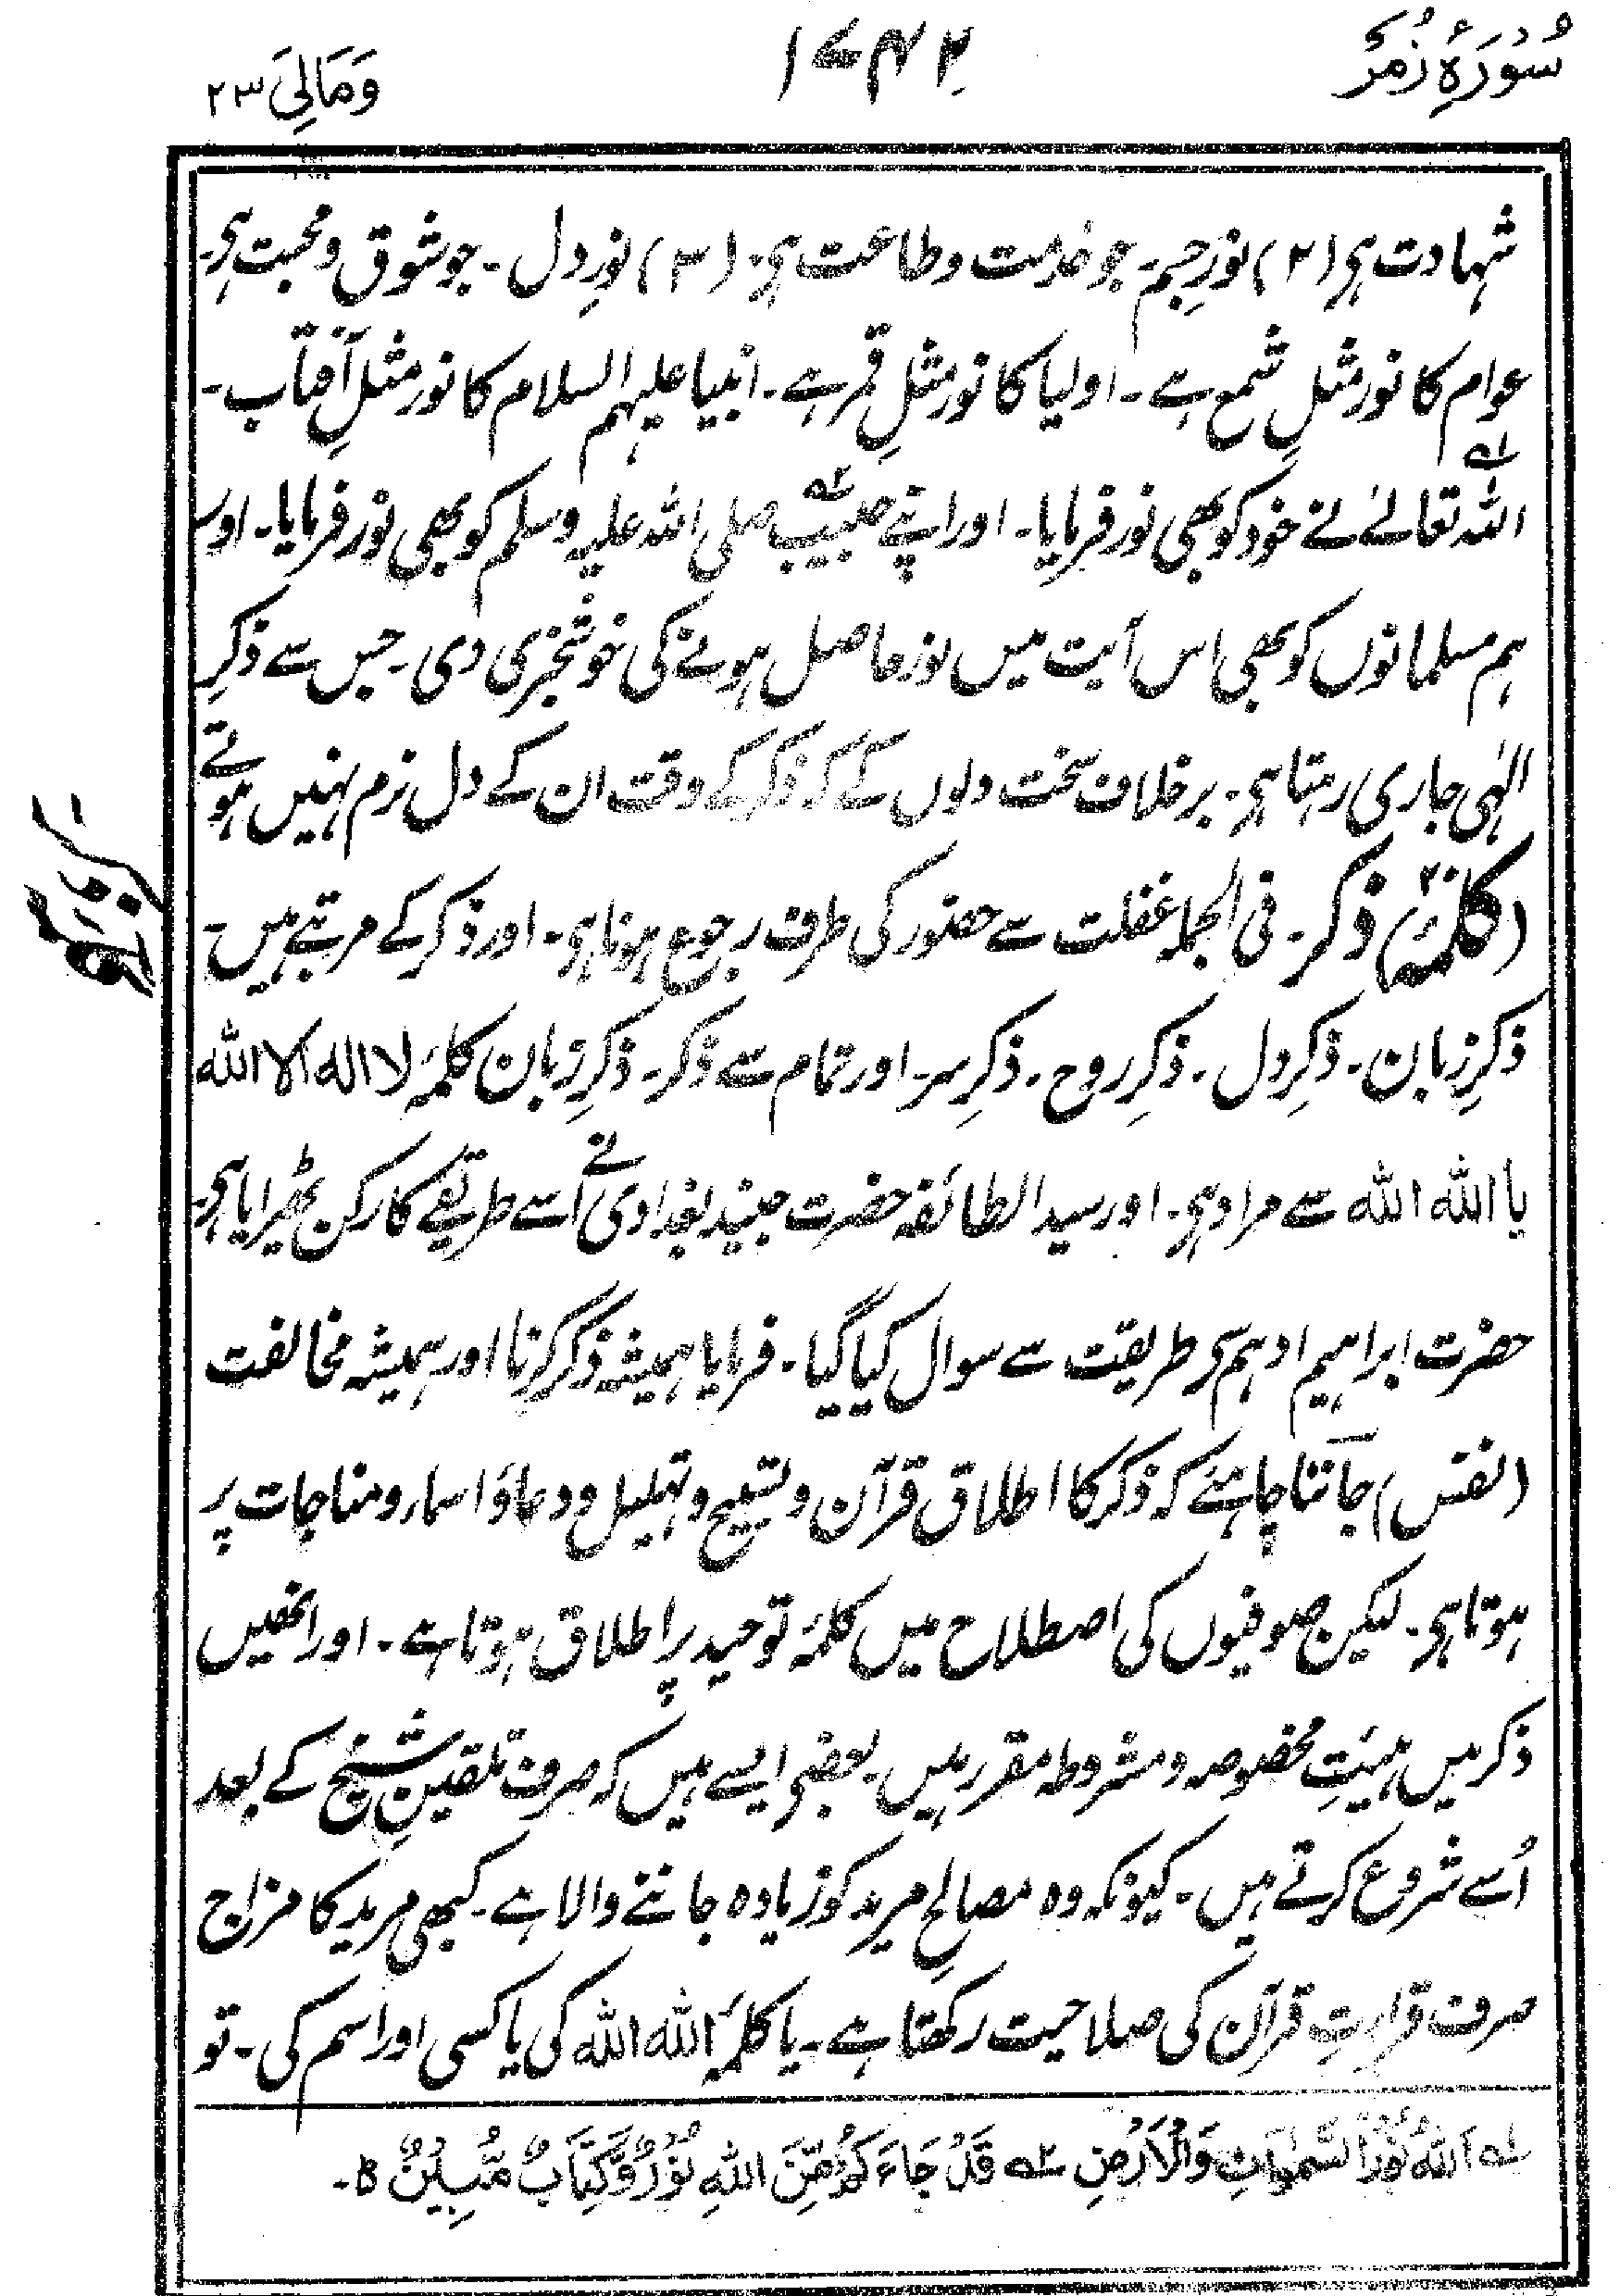 سُوْرَۃُ زُمَر
۱۷۴۲
وَمَالِیَ ۲۳
شہادت ہی (۲) نورِ جسم۔ جو خدمت وطاعت ہی۔ (۳) نورِ دل۔ جو شوق ومحبت ہی۔
عوام کا نور مثلِ شمع ہے۔ اولیا کا نور مثلِ قمر ہے۔ انبیا علیہم السلام کا نور مثلِ آفتاب۔
اللہ تعالےٰ ؎۱ نے خود کو بھی نور فرمایا۔ اور اپنے حبیب ؎۲ صلی اللہ علیہ وسلم کو بھی نور فرمایا۔ اور
ہم مسلمانوں کو بھی اس آیت میں نور حاصل ہونے کی خوشخبری دی۔ جس سے ذکرِ
الٰہی جاری رہتا ہی۔ برخلاف سخت دلوں کے کہ ذکر کے وقت ان کے دل نرم نہیں ہوتے
(کلمۂ ۲۰) ذکر۔ فی الجملہ غفلت سے حضور کی طرف رجوع ہونا ہی۔ اور ذکر کے مرتبے ہیں۔
ذکرِ زبان۔ ذکرِ دل۔ ذکرِ روح۔ ذکرِ سر۔ اور تمام سے ذکر۔ ذکرِ زبان کلمۂ لا الہ الا اللہ
یا اللہ اللہ سے مراد ہی۔ اور سید الطائفہ حضرت جنید بغدادی نے اسے طریقے کا رکن ٹھیرایا ہی۔
حضرت ابراہیم ادہم سی طریقت سے سوال کیا گیا۔ فرمایا ہمیشہ ذکر کرنا اور ہمیشہ مخالفت
(نفس) جاننا چاہئے کہ ذکر کا اطلاق قرآن وتسبیح وتہلیل ودعاؤ اسماء ومناجات پر
ہوتا ہی۔ لیکن صوفیوں کی اصطلاح میں کلمۂ توحید پر اطلاق ہوتا ہے۔ اور انھیں
ذکر میں ہیئتِ مخصوصہ ومشروطہ مقرر ہیں۔ بعضے ایسے ہیں کہ صرف تلقینِ شیخ کے بعد
اُسے شروع کرتے ہیں۔ کیونکہ وہ مصالحِ مرید کو زیادہ جاننے والا ہے۔ کبھی مرید کا مزاج
صرف قراءتِ قرآن کی صلاحیت رکھتا ہے۔ یا کلمۂ اللہ اللہ کی یا کسی اور اسم کی۔ تو
؎۱ اَللہُ نُوْرُ السَّمٰوَاتِ وَالْاَرْضِ ؎۲ قَدْ جَاءَکُمْ مِّنَ اللہِ نُوْرٌ وَّکِتَابٌ مُّبِیْنٌ ط۔